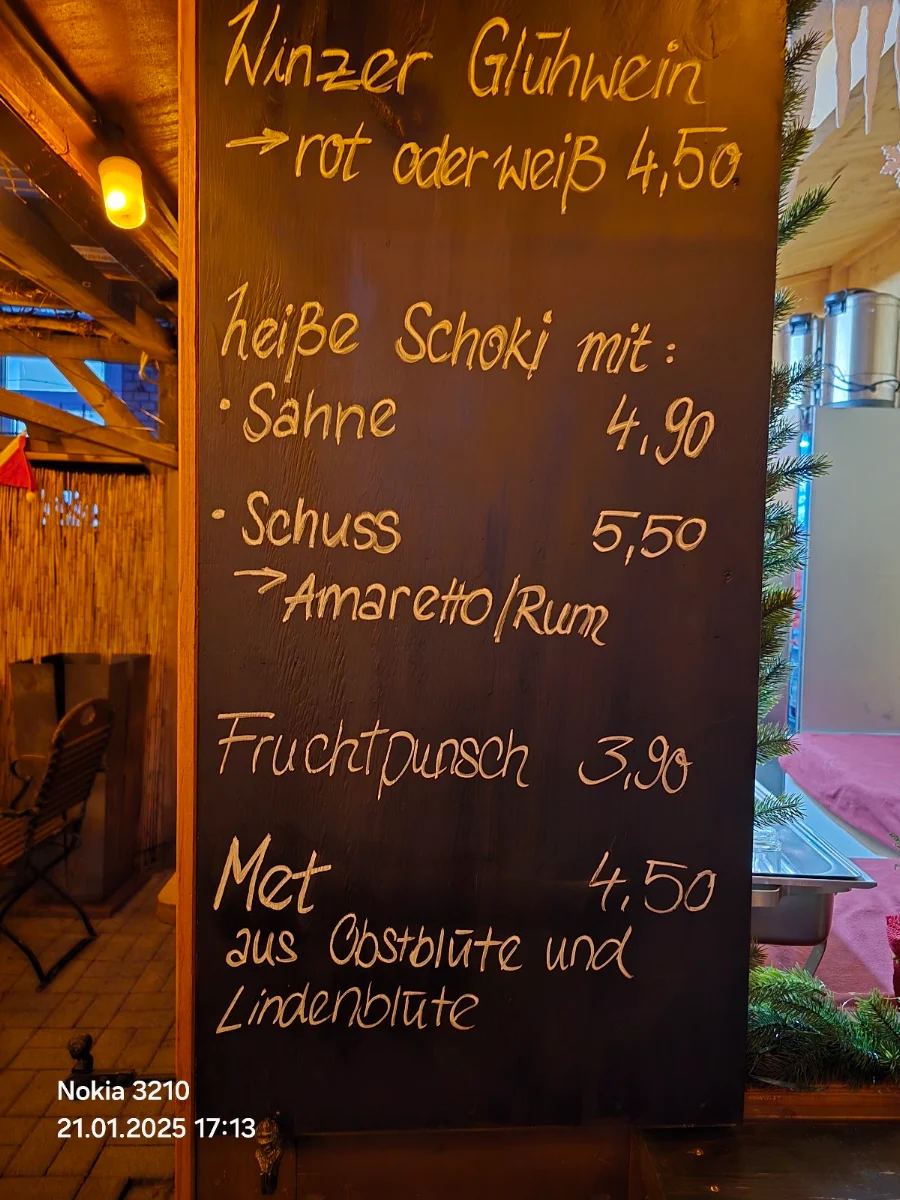 Winzer Glühwein
→ rot oder weiß 4,50
heiße Schoki mit:
• Sahne 4,90
• Schuss 5,50
→ Amaretto/Rum
Fruchtpunsch 3,90
Met 4,50
aus Obstblüte und
Lindenblüte
Nokia 3210
21.01.2025 17:13